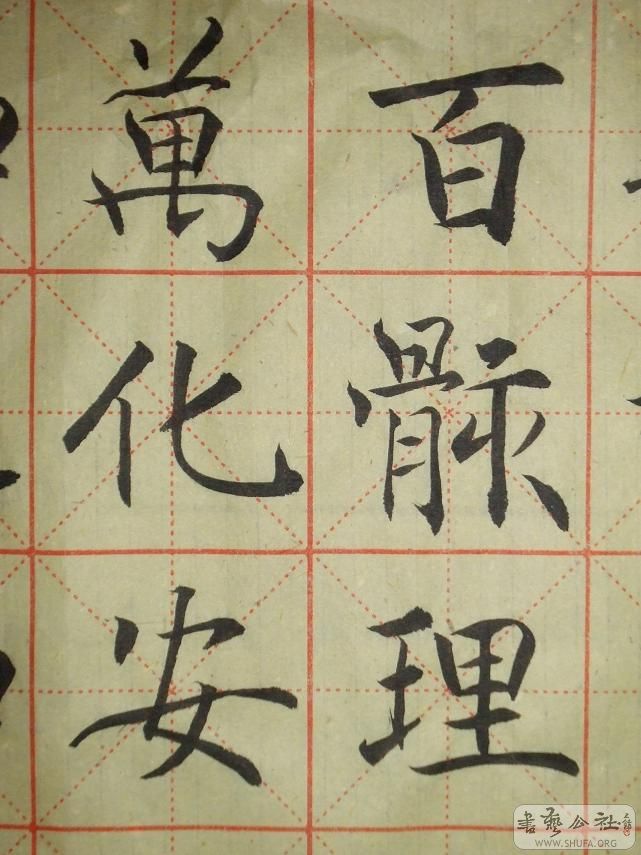 百骸理
萬化安
書藝公社
WWW.SHUFA.ORG